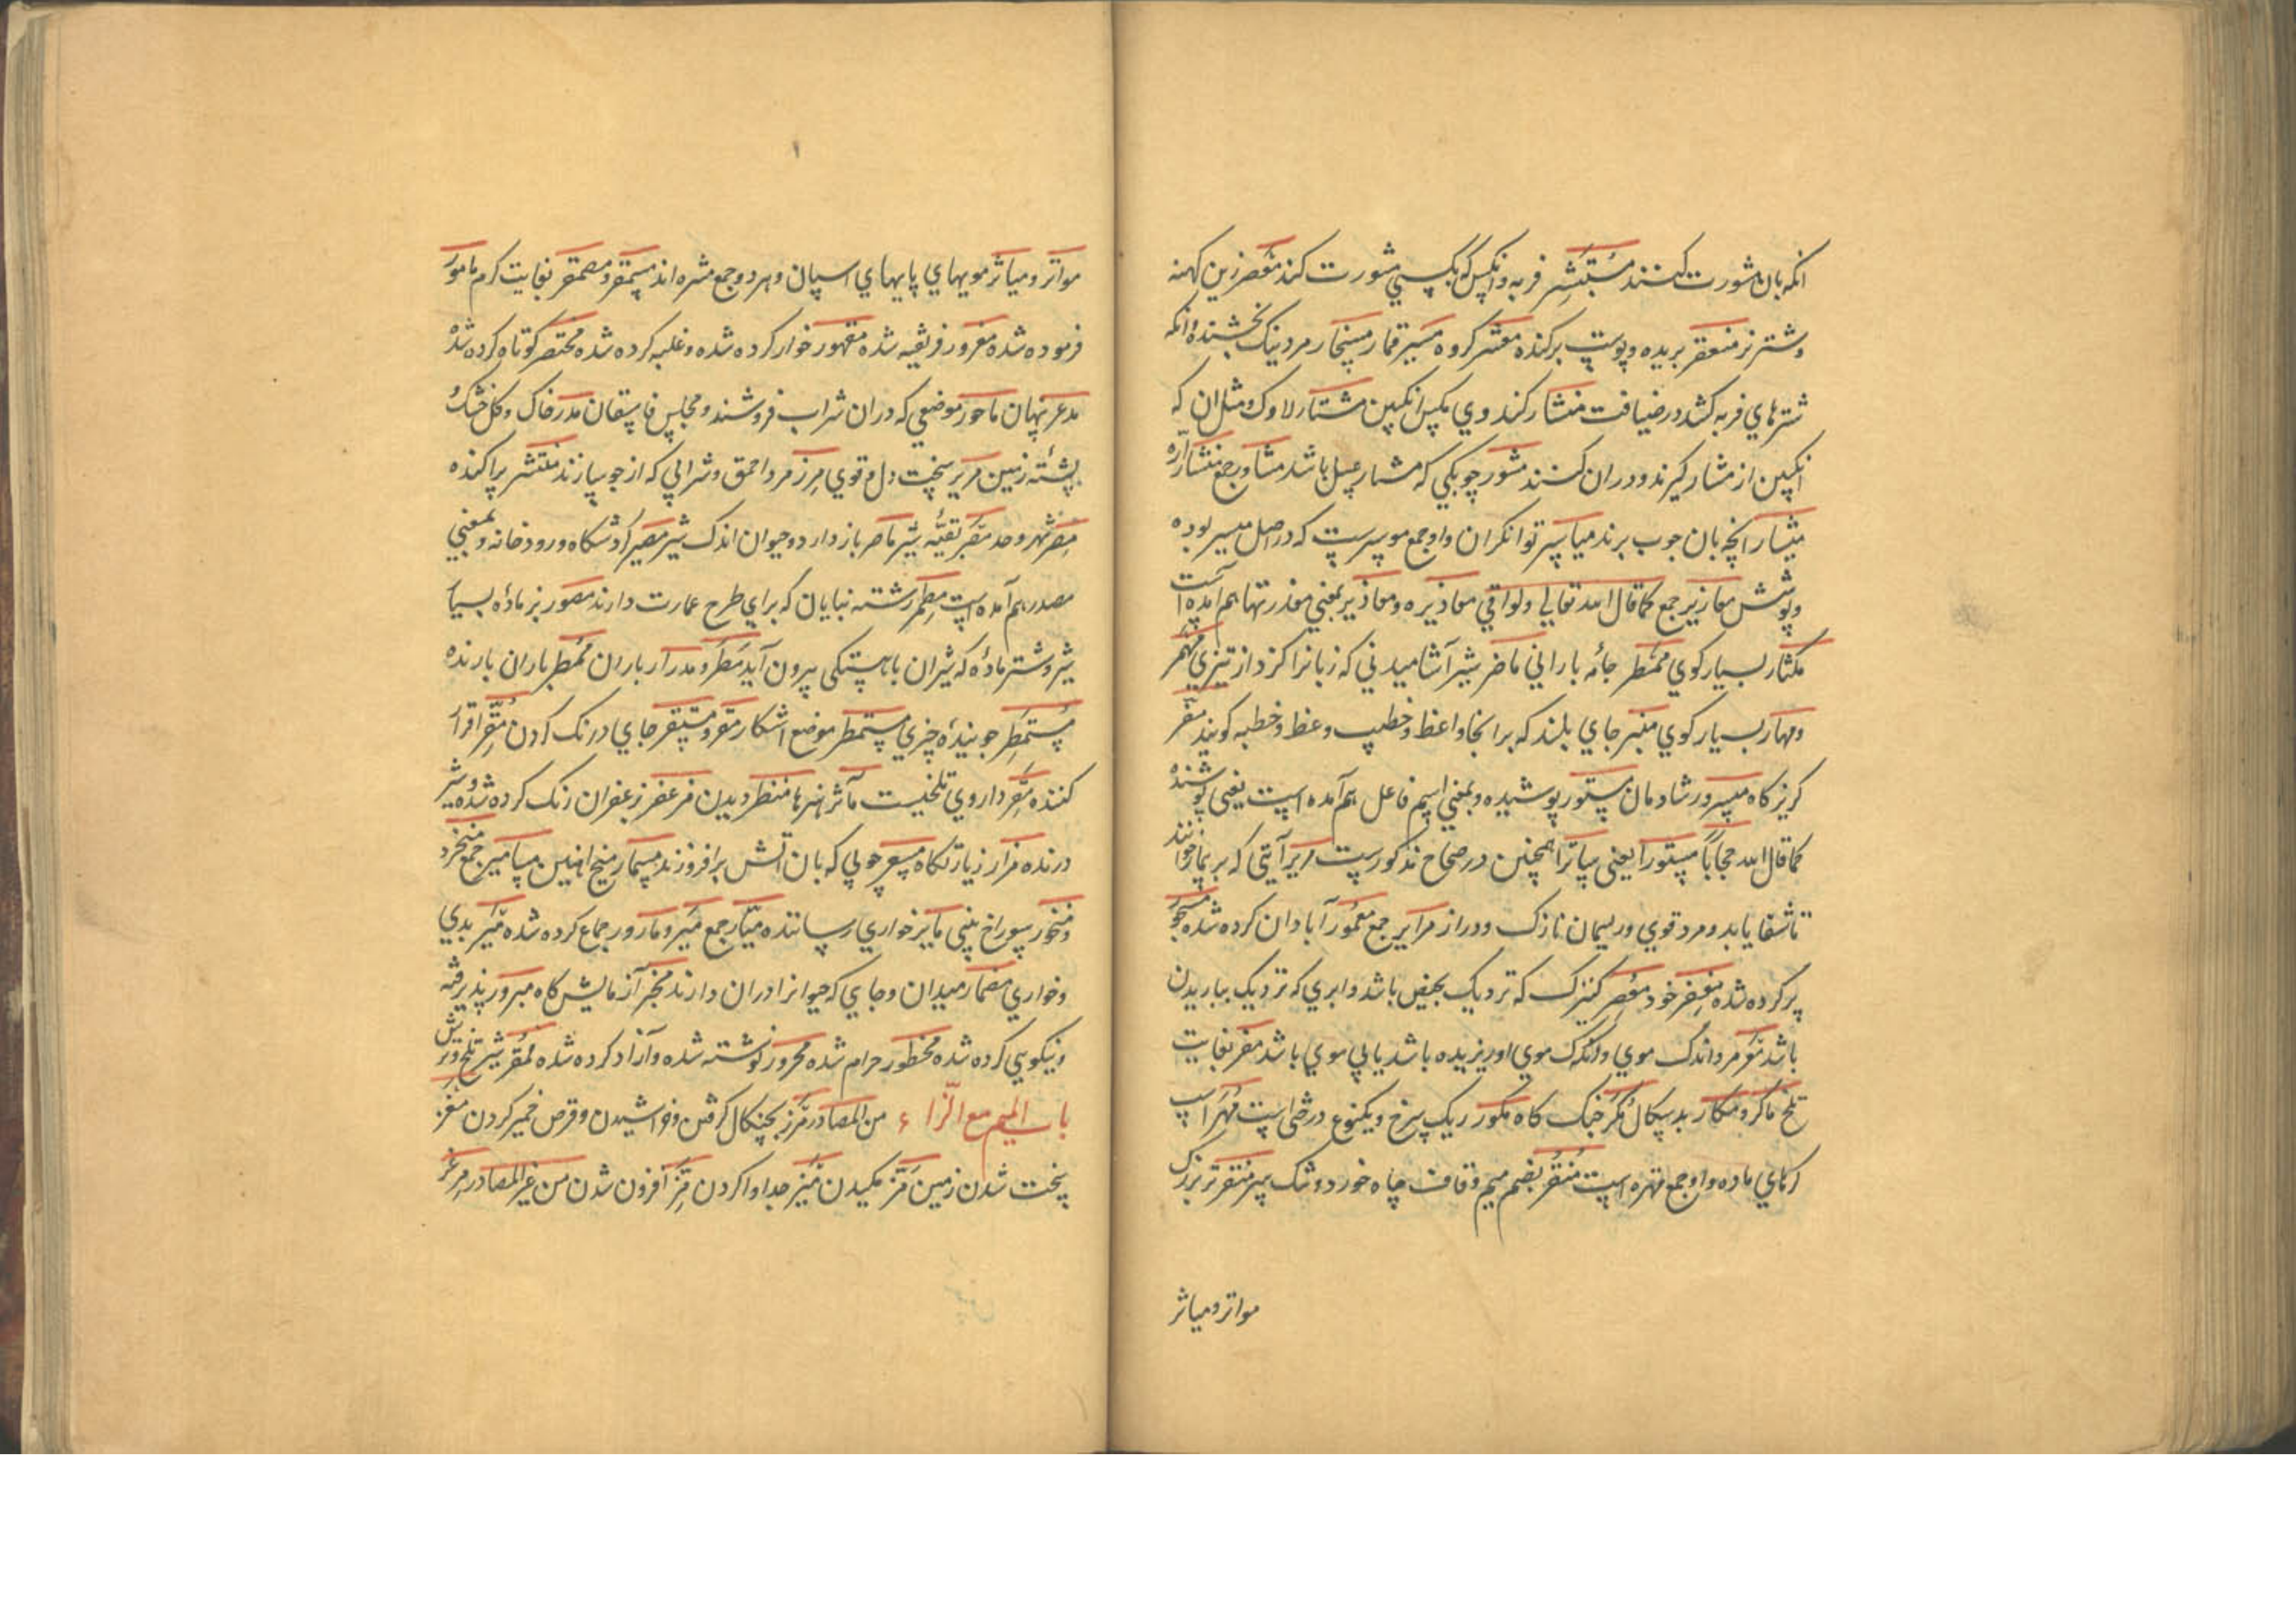 انکه بان مشورت کنند مستبشر فربه وانکس که بکسی مشورت کند معصر زین کهنه
وشتر نر منعقر بریده و پوست برکنده معشر کروه میسر قمار مرد نیک بخشنده وانکه
شترهای فربه کشد در ضیافت منشار کندوی مکس انکبین مشتار لاوک ومثل ان که
انکبین از مشار کیرند ودران کنند مشور چوبکی که مشار عسل باشد مشاور جمع منشار اره
میشار انچه بان چوب برند میاسیر توانکران واو جمع موسرست که دراصل میسر بوده
وپوشش معازیر جمع کما قال الله تعالی ولو القی معاذیره ومعاذیر بمعنی معذرتها هم امده است
مکثار بسیار کوی ممطر جامه بارانی ماضر شیر آشامیدنی که زبانرا کزد از تیزی مهمر
ومهار بسیار کوی منبر جای بلند که برانجا واعظ وخطیب وعظ وخطبه کویند مفر
کریز کاه مسرور شادمان مستور پوشیده وبمعنی اسم فاعل هم آمده است یعنی پوشنده
کما قال الله حجابا مستورا یعنی ساترا همچنین در صحاح مذکورست مریر آیتی که بر بیمار خوانند
تا شفا یابد ومرد قوی وریسمان نازک ودراز مرایر جمع معمور آبادان کرده شده مسجور
پر کرده شده مغفر خود معصر کنیزک که نزدیک بحیض باشد وابری که نزدیک بباریدن
باشد معر مرد اندک موی وانکه موی او ریزیده باشد یا بی موی باشد ممقر بغایت
تلخ ماکر ومکار بدسکال مکر خنک کاه مکور ریک سرخ ویکنوع درختی است مهر اسپ
کهای ماده واو جمع مهره است منقر بضم میم وقاف چاه خورد وتنک سر منقر تبر بزرک
مواتر ومیاثر
مواتر ومیاثر مویهای پایهای اسپان وهر دو جمع مثره اند مسمقر ومصمقر بغایت کرم مامور
فرموده شده مغرور فریفته شده مقهور خوار کرده شده وغلبه کرده شده مختصر کوتاه کرده شده
مدعر پنهان ماخور موضعی که دران شراب فروشند ومجلس فاسقان مدر خاک وکل خشک
پشته زمین مریر سخت دل وقوی مزر مرد احمق وشرابی که از جو سازند منتشر پراکنده
مصر شهر وحد مصر بقیه شیر ماصر بازدارد وحیوان اندک شیر مصیر کاه ورودخانه وبمعنی
مصدر هم آمده است مطمر رشته بنایان که برای طرح عمارت دارند مصور بز ماده بسیار
شیر وشتر ماده که شیران باهستکی بیرون آید مطر ومدرار باران ممطر باران بارنده
مستمطر جوینده چیزی مستمطر موضع اشکار مقر ومستقر جای درنک کردن مقر اقرار
کننده مقر داروی تلخیست مآثر هنرها منظر دیدن مزعفر بزعفران رنک کرده شده وشیر
درنده مزار زیارتکاه مسعر چوبی که بان اتش برافروزند مسمار میخ اهنین مسامیر جمع منخر
ومنخور سوراخ بینی مایر خواری رساننده میار جمع میر ومارور جماع کرده شده میر بدی
وخواری مضمار میدان وجایی که حیوانرا دران دارند مخبر آزمایش کاه مبرور پذیرفته
ونیکویی کرده شده محظور حرام شده محرور نوشته شده وآزاد کرده شده ممقر شیر تلخ وترش
باب المیم مع الزاء من المصادر مرز بچنکال کرفتن وخراشیدن وقرص خمیر کردن معز
سخت شدن زمین مز مکیدن میز جدا واکردن مز افزون شدن من غیر المصادر مرعز